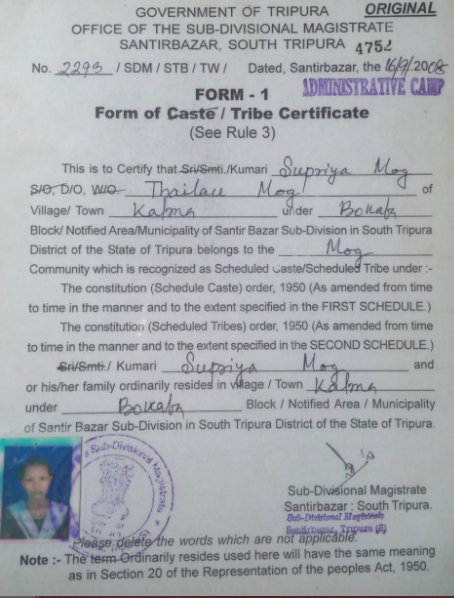 GOVERNMENT OF TRIPURA ORIGINAL
OFFICE OF THE SUB-DIVISIONAL MAGISTRATE
SANTIRBAZAR, SOUTH TRIPURA 4752
No. 2293 / SDM / STB / TW / Dated, Santirbazar, the 16/9/2008
ADMINISTRATIVE CAMP
FORM - 1
Form of Caste / Tribe Certificate
(See Rule 3)
This is to Certify that Sri/Smti./Kumari Supriya Mog
S/O, D/O, W/O- Thailau Mog of
Village/ Town Kalma under Bokafa
Block/ Notified Area/Municipality of Santir Bazar Sub-Division in South Tripura
District of the State of Tripura belongs to the Mog
Community which is recognized as Scheduled Caste/Scheduled Tribe under :-
The constitution (Schedule Caste) order, 1950 (As amended from time
to time in the manner and to the extent specified in the FIRST SCHEDULE.)
The constitution (Scheduled Tribes) order, 1950 (As amended from time
to time in the manner and to the extent specified in the SECOND SCHEDULE.)
Sri/Smti./ Kumari Supriya Mog and
or his/her family ordinarily resides in village / Town Kalma
under Bokafa Block / Notified Area / Municipality
of Santir Bazar Sub-Division in South Tripura District of the State of Tripura.
Sub-Divisional Magistrate
Sub-Divisional Magistrate
Santirbazar : South Tripura.
Sub-Divisional Magistrate
Santirbazar, Tripura (S)
Please delete the words which are not applicable.
Note :- The term Ordinarily resides used here will have the same meaning
as in Section 20 of the Representation of the peoples Act, 1950.